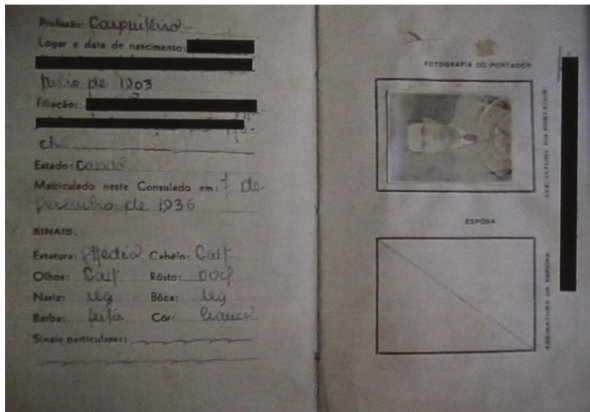 Profissão: Carpinteiro
Logar e data de nascimento:
de 1903
Filiação:
Estado: Casado
Matriculado neste Consulado em: 1 de
de 1936
SINAIS:
Estatura: Cabêlo: Cast
Olhos: Cast Rôsto:
Nariz: reg Bôca: reg
Barba: feita Côr: branca
Sinais particulares:
FOTOGRAFIA DO PORTADOR
ASSINATURA DO PORTADOR
ESPOSA
ASSINATURA DA ESPOSA